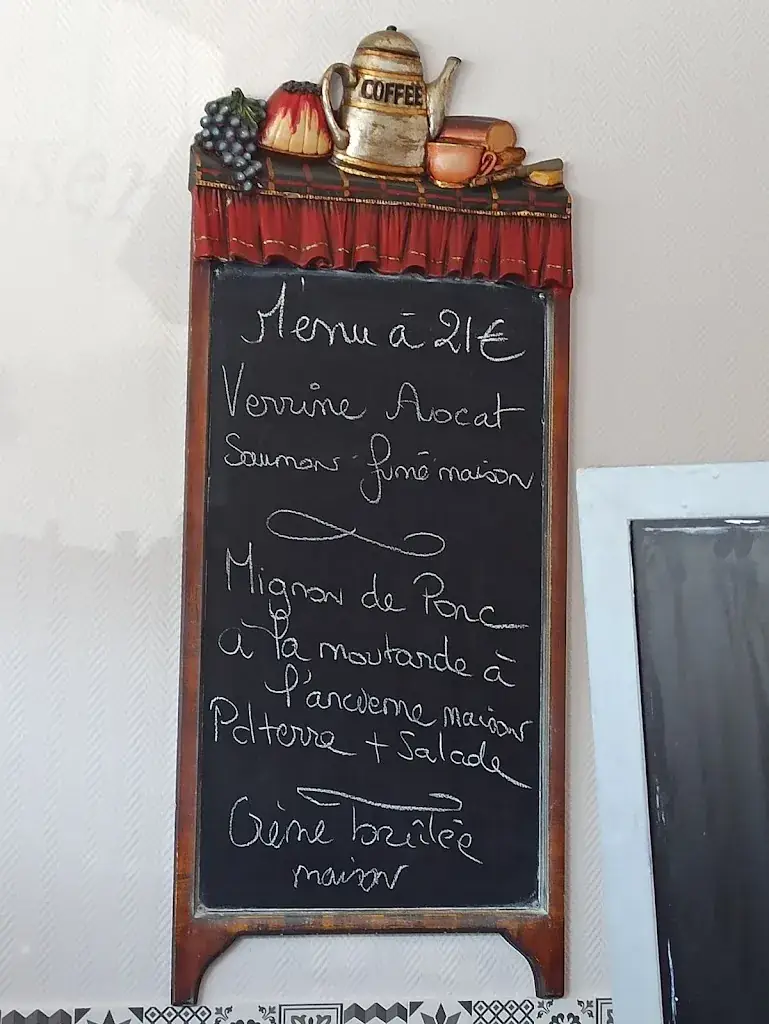 COFFEE
Menu à 21€
Verrine Avocat
Saumon fumé maison
Mignon de Porc
à la moutarde à
l'ancienne maison
Pdterre + Salade
Crème brûlée
maison